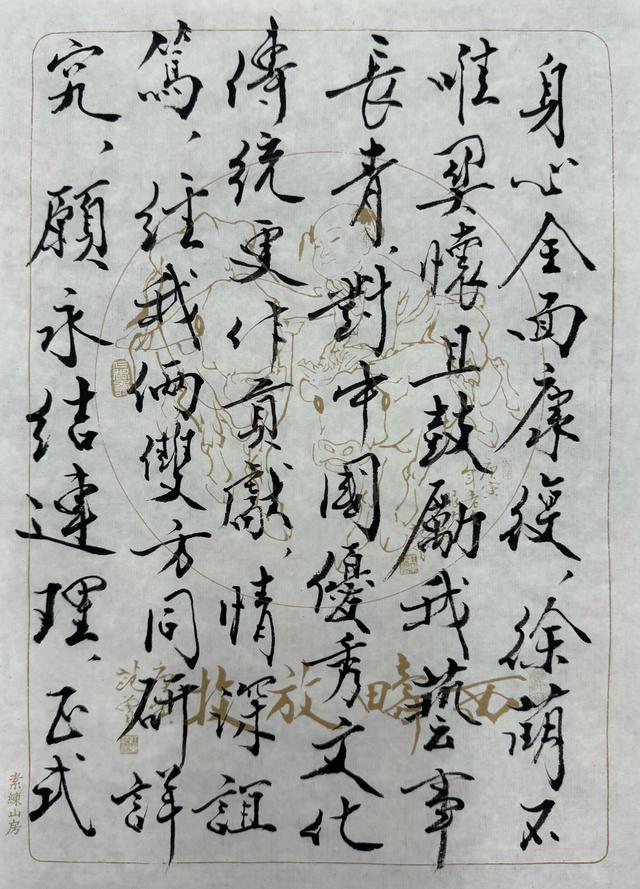 身心全面康復、徐萌不
唯懷且鼓勵我藝事
長青、對中國優秀文化
傳統更作貢獻、情深誼
篤、經我倆雙方同研詳
究、願永結連理、正式
西疇放牧
素練山房